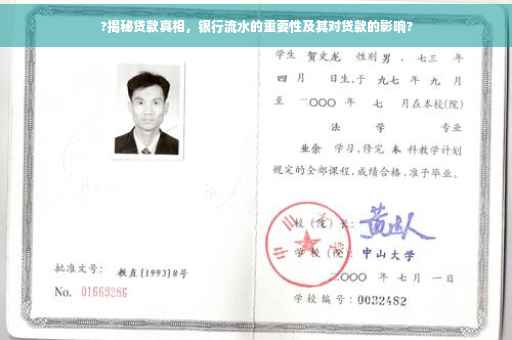 ?揭秘贷款真相，银行流水的重要性及其对贷款的影响?
学生 贺文龙 性别 男 、七三 年
四 月 日生,于 九七 年 九 月
至 二〇〇〇 年 七 月在本校(院)
法 学 专业
业余 学习,修完 本 科教学计划
规定的全部课程,成绩合格,准予毕业。
校 (院) 长:
学 校 (院): 中山大学
二〇〇〇 年 七 月 一 日
批准文号: 教直[1993]8号
No. 01669286
学校编号: 0032482